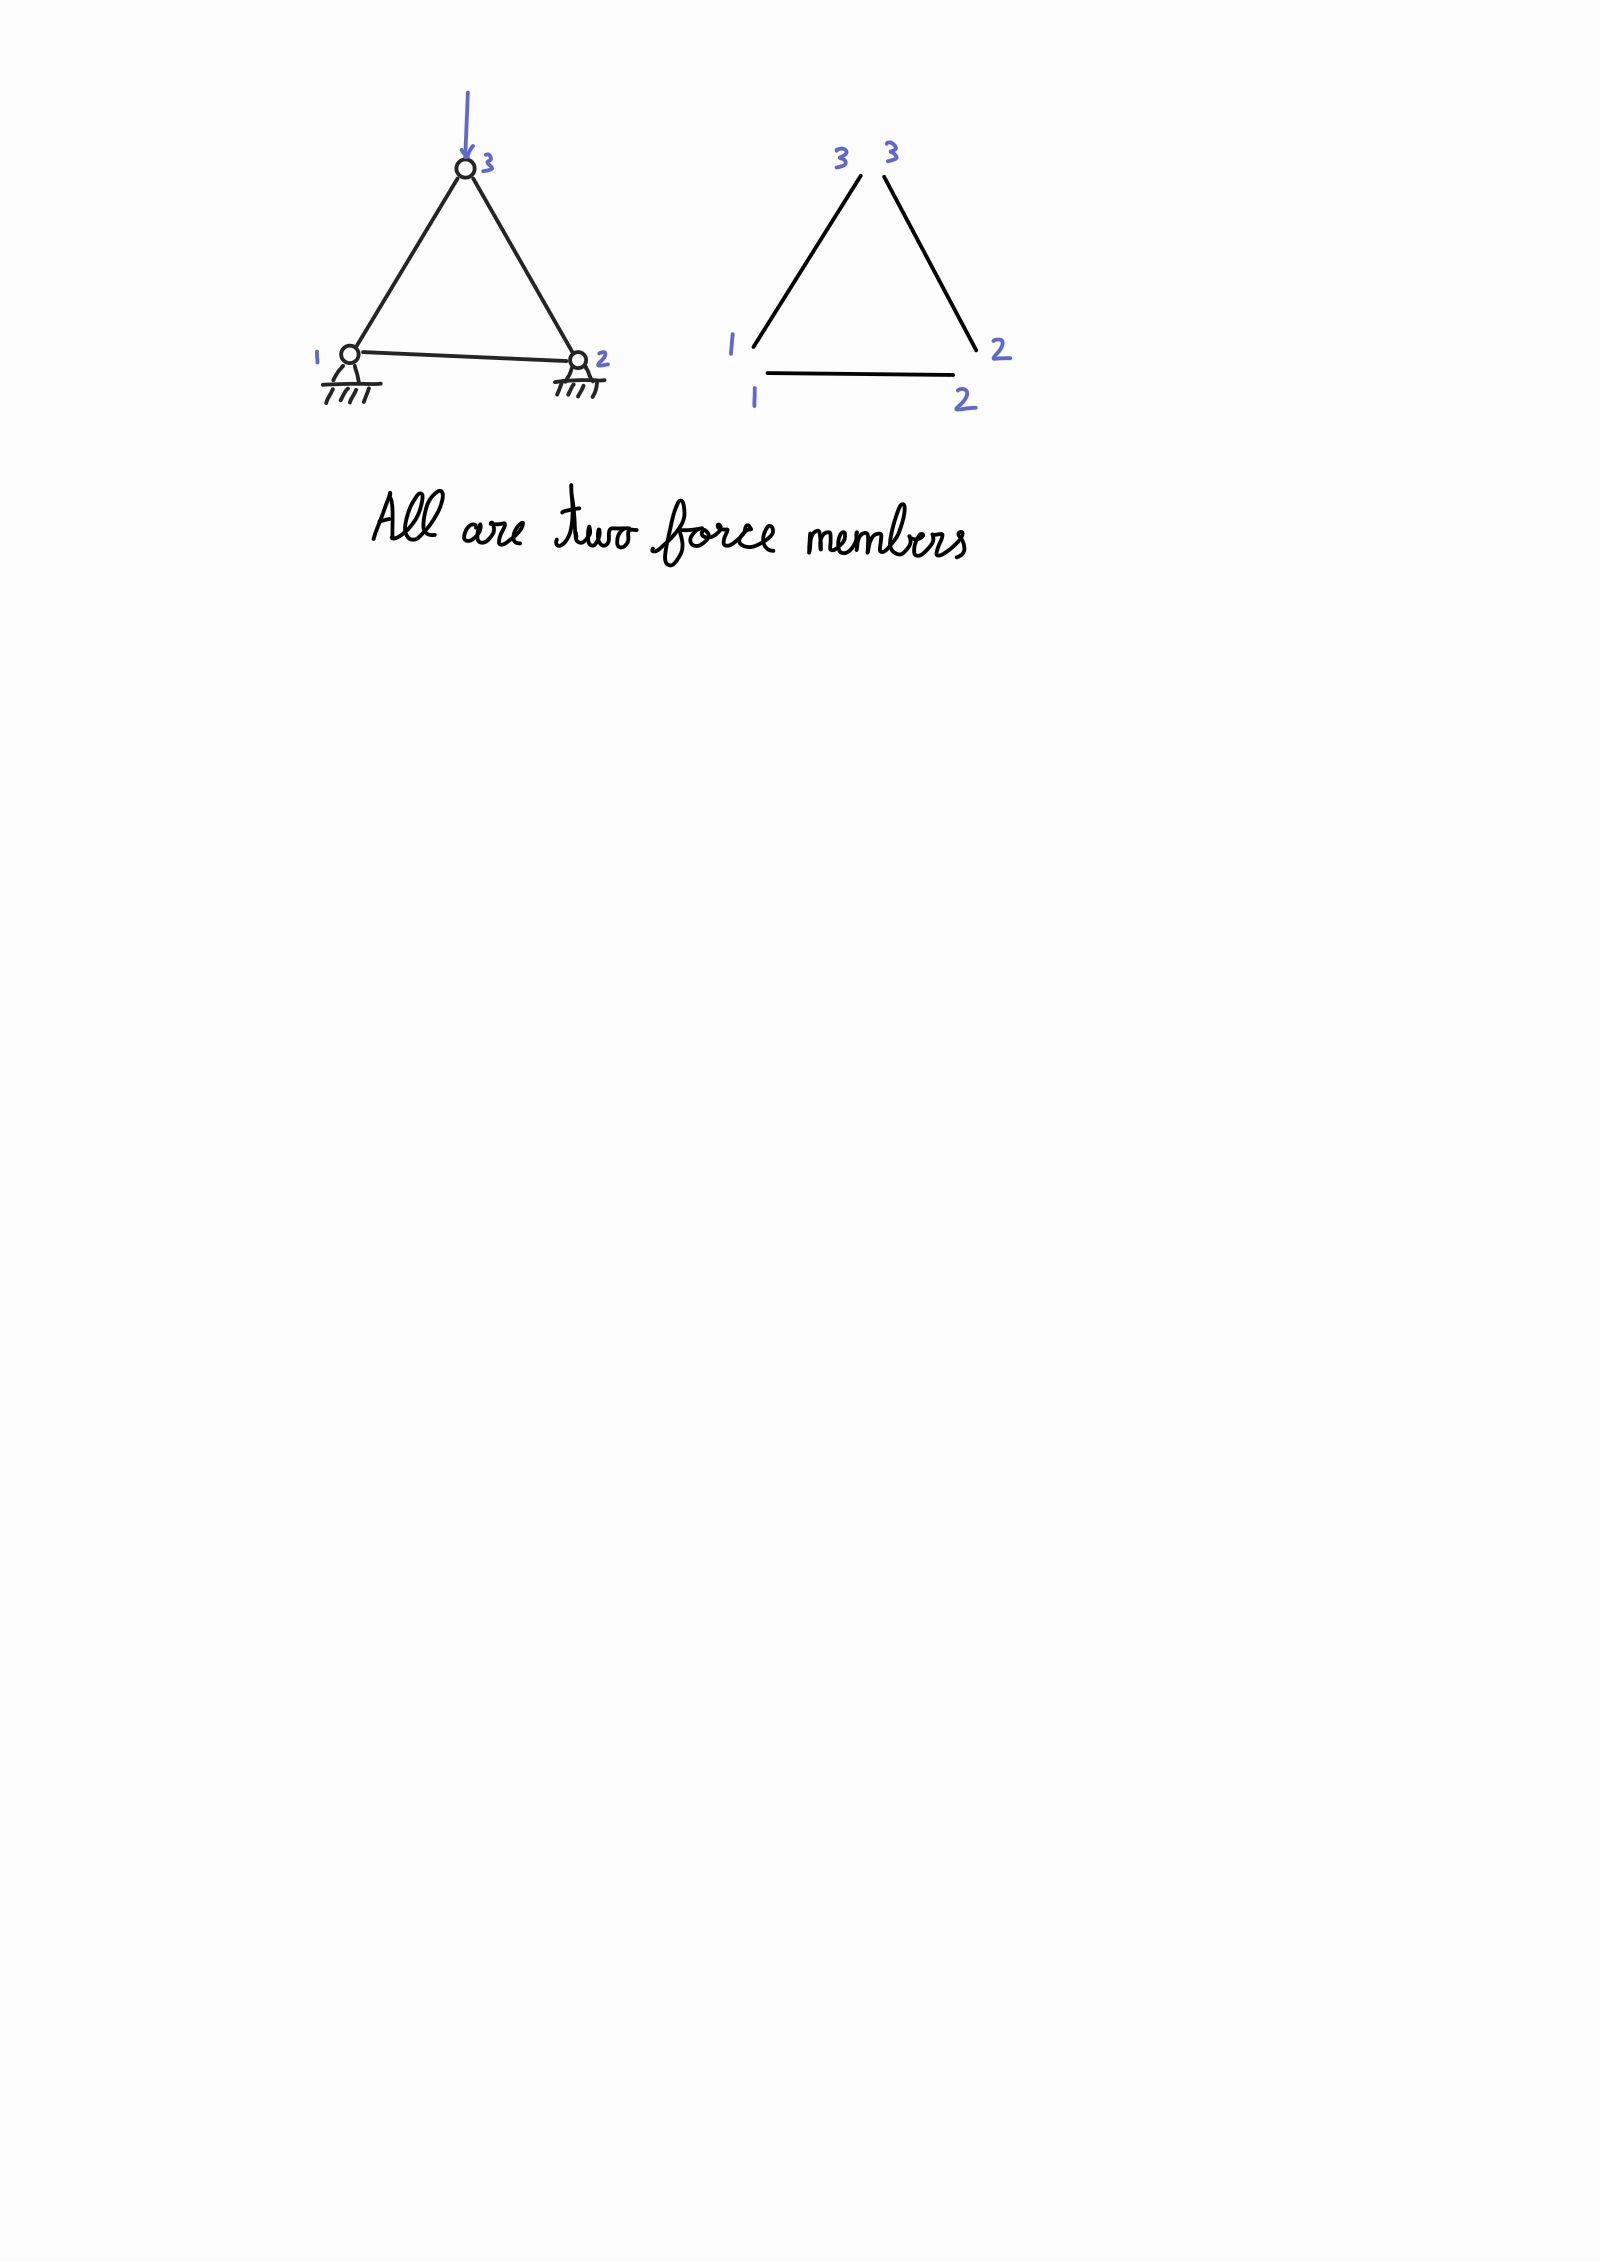 3
3 3
1 2
1 2
1 2
All are two force members